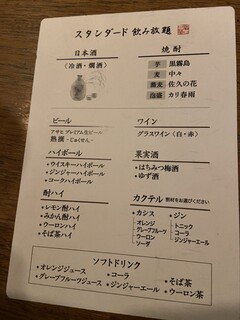 スタンダード 飲み放題
日本酒
(冷酒・燗酒)
焼酎
芋 黒霧島
麦 中々
蕎麦 佐久の花
泡盛 カリ春雨
ビール
アサヒ プレミアム生ビール
熟撰 -じゅくせん-
ワイン
グラスワイン (白・赤)
ハイボール
・ウイスキーハイボール
・ジンジャーハイボール
・コークハイボール
果実酒
・はちみつ梅酒
・ゆず酒
酎ハイ
・レモン酎ハイ
・みかん酎ハイ
・ウーロンハイ
・そば茶ハイ
カクテル 割材をお選びください
・カシス
オレンジ
グレープフルーツ
ウーロン
ソーダ
・ジン
トニック
コーラ
ジンジャーエール
ソフトドリンク
・オレンジジュース ・コーラ ・そば茶
・グレープフルーツジュース ・ジンジャーエール ・ウーロン茶